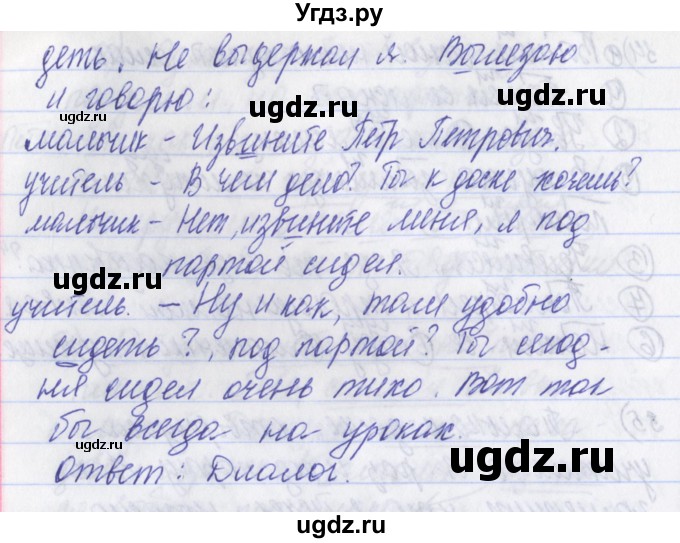 Угдз.ру
деть. Не выдержал я. Вылезаю
и говорю:
ugdz.ru
ugdz.ru
мальчик - Извините Пётр Петрович.
учитель - В чем дело? Ты к доске хочешь?
мальчик - Нет, извините меня, я под
партой сидел.
ugdz.ru
ugdz.ru
учитель. - Ну и как, там удобно
сидеть?, под партой? Ты сегод-
ня сидел очень тихо. Вот так
бы всегда на уроках.
ugdz.ru
ugdz.ru
Ответ: Диалог.
ugdz.ru
ugdz.ru